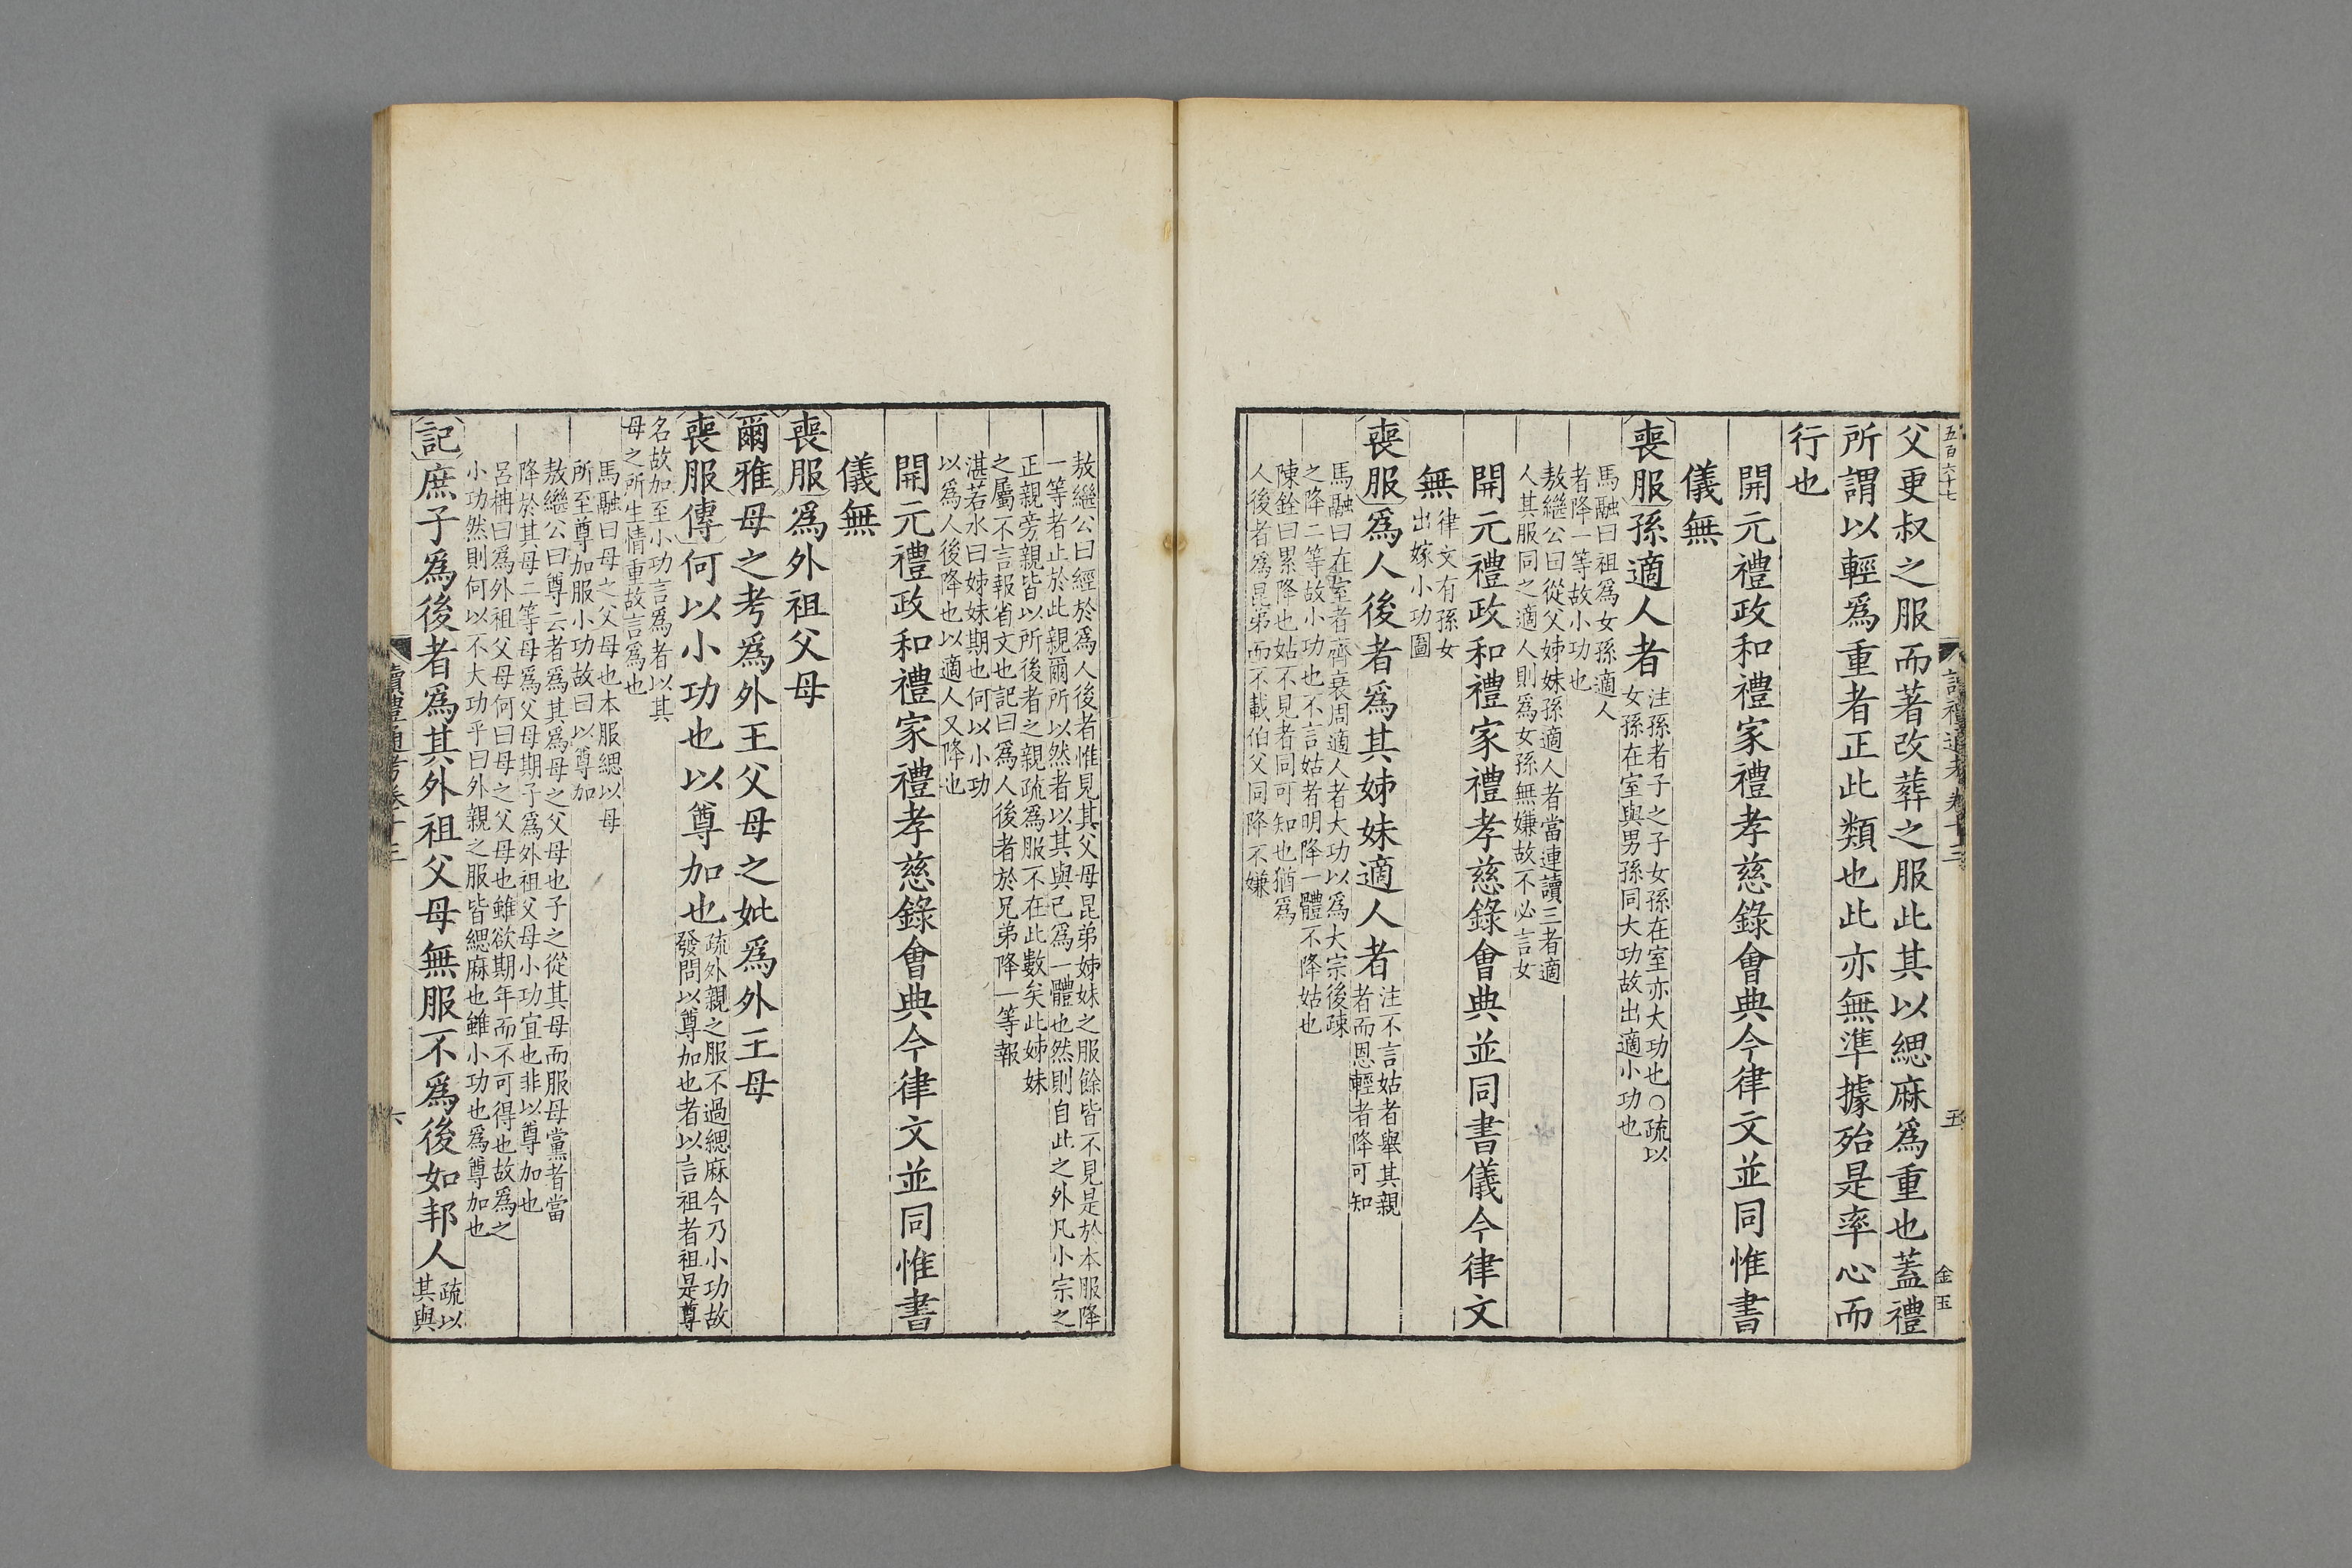 五百六十七
讀禮通考 卷十三
五
金玉
父更叔之服而著改葬之服此其以緦麻爲重也蓋禮
所謂以輕爲重者正此類也此亦無準據殆是率心而
行也
開元禮政和禮家禮孝慈錄會典今律文並同惟書
儀無
喪服孫適人者注孫者子之子女孫在室亦大功也○疏以
女孫在室與男孫同大功故出適小功也
馬融曰祖爲女孫適人
者降一等故小功也
敖繼公曰從父姊妹孫適人者當連讀三者適
人其服同之適人則爲女孫無嫌故不必言女
開元禮政和禮家禮孝慈錄會典並同書儀今律文
無律文有孫女
出嫁小功圖
喪服爲人後者爲其姊妹適人者注不言姑者舉其親
者而恩輕者降可知
馬融曰在室者齊衰周適人者大功以爲大宗後疎
之降二等故小功也不言姑者明降一體不降姑也
陳銓曰累降也姑不見者同可知也猶爲
人後者爲昆弟而不載伯父同降不嫌
敖繼公曰經於爲人後者惟見其父母昆弟姊妹之服餘皆不見是於本服降
一等者止於此親爾所以然者以其與己爲一體也然則自此之外凡小宗之
正親旁親皆以所後者之親疏爲服不在此數矣此姊妹
之屬不言報省文也記曰爲人後者於兄弟降一等報
湛若水曰姊妹期也何以小功
以爲人後降也以適人又降也
開元禮政和禮家禮孝慈錄會典今律文並同惟書
儀無
喪服爲外祖父母
爾雅母之考爲外王父母之妣爲外王母
喪服傳何以小功也以尊加也疏外親之服不過緦麻今乃小功故
發問以尊加也者以言祖者祖是尊
名故加至小功言爲者以其
母之所生情重故言爲也
馬融曰母之父母也本服緦以母
所至尊加服小功故曰以尊加
敖繼公曰尊云者爲其爲母之父母也子之從其母而服母黨者當
降於其母二等母爲父母期子爲外祖父母小功宜也非以尊加也
呂柟曰爲外祖父母何曰母之父母也雖欲期年而不可得也故爲之
小功然則何以不大功乎曰外親之服皆緦麻也雖小功也爲尊加也
記庶子爲後者爲其外祖父母無服不爲後如邦人疏以
其與
讀禮通考卷十三
六